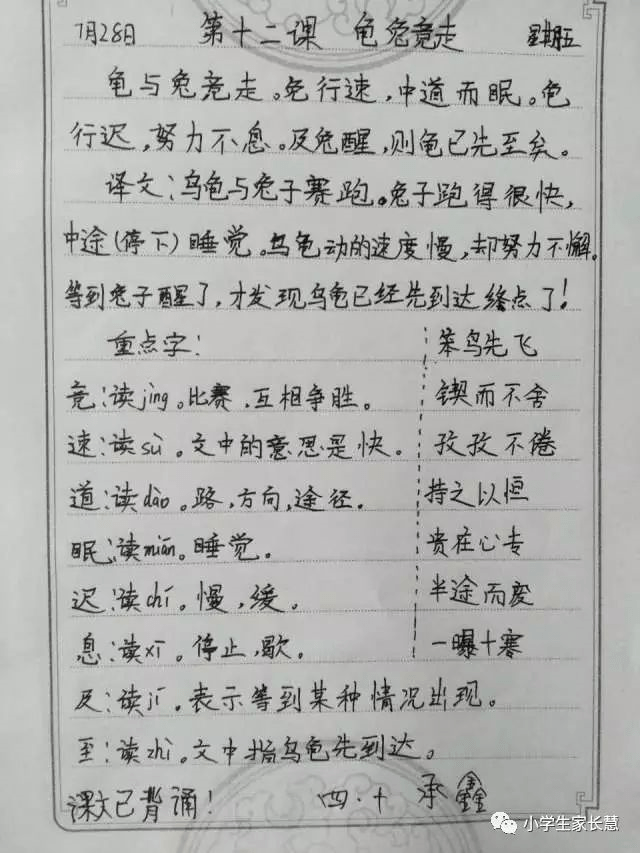 7月28日 第十二课 龟兔竞走 星期五
龟与兔竞走。兔行速，中道而眠。龟
行迟，努力不息。及兔醒，则龟已先至矣。
译文：乌龟与兔子赛跑。兔子跑得很快，
中途(停下)睡觉。乌龟动的速度慢，却努力不懈。
等到兔子醒了，才发现乌龟已经先到达终点了！
重点字： 笨鸟先飞
竞：读jìng。比赛，互相争胜。 锲而不舍
速：读sù。文中的意思是快。 孜孜不倦
道：读dào。路，方向，途径。 持之以恒
眠：读mián。睡觉。 贵在心专
迟：读chí。慢，缓。 半途而废
息：读xī。停止，歇。 一曝十寒
及：读jí。表示等到某种情况出现。
至：读zhì。文中指乌龟先到达。
课文已背诵！ 四·十 承鑫
小学生家长慧